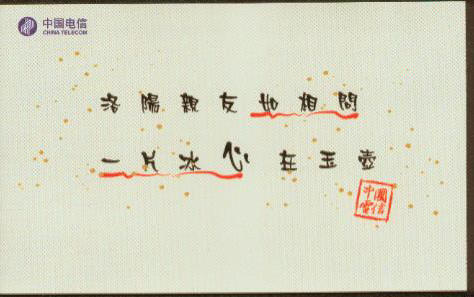 中国电信
CHINA TELECOM
洛陽親友如相問
一片冰心在玉壺
中國
電信